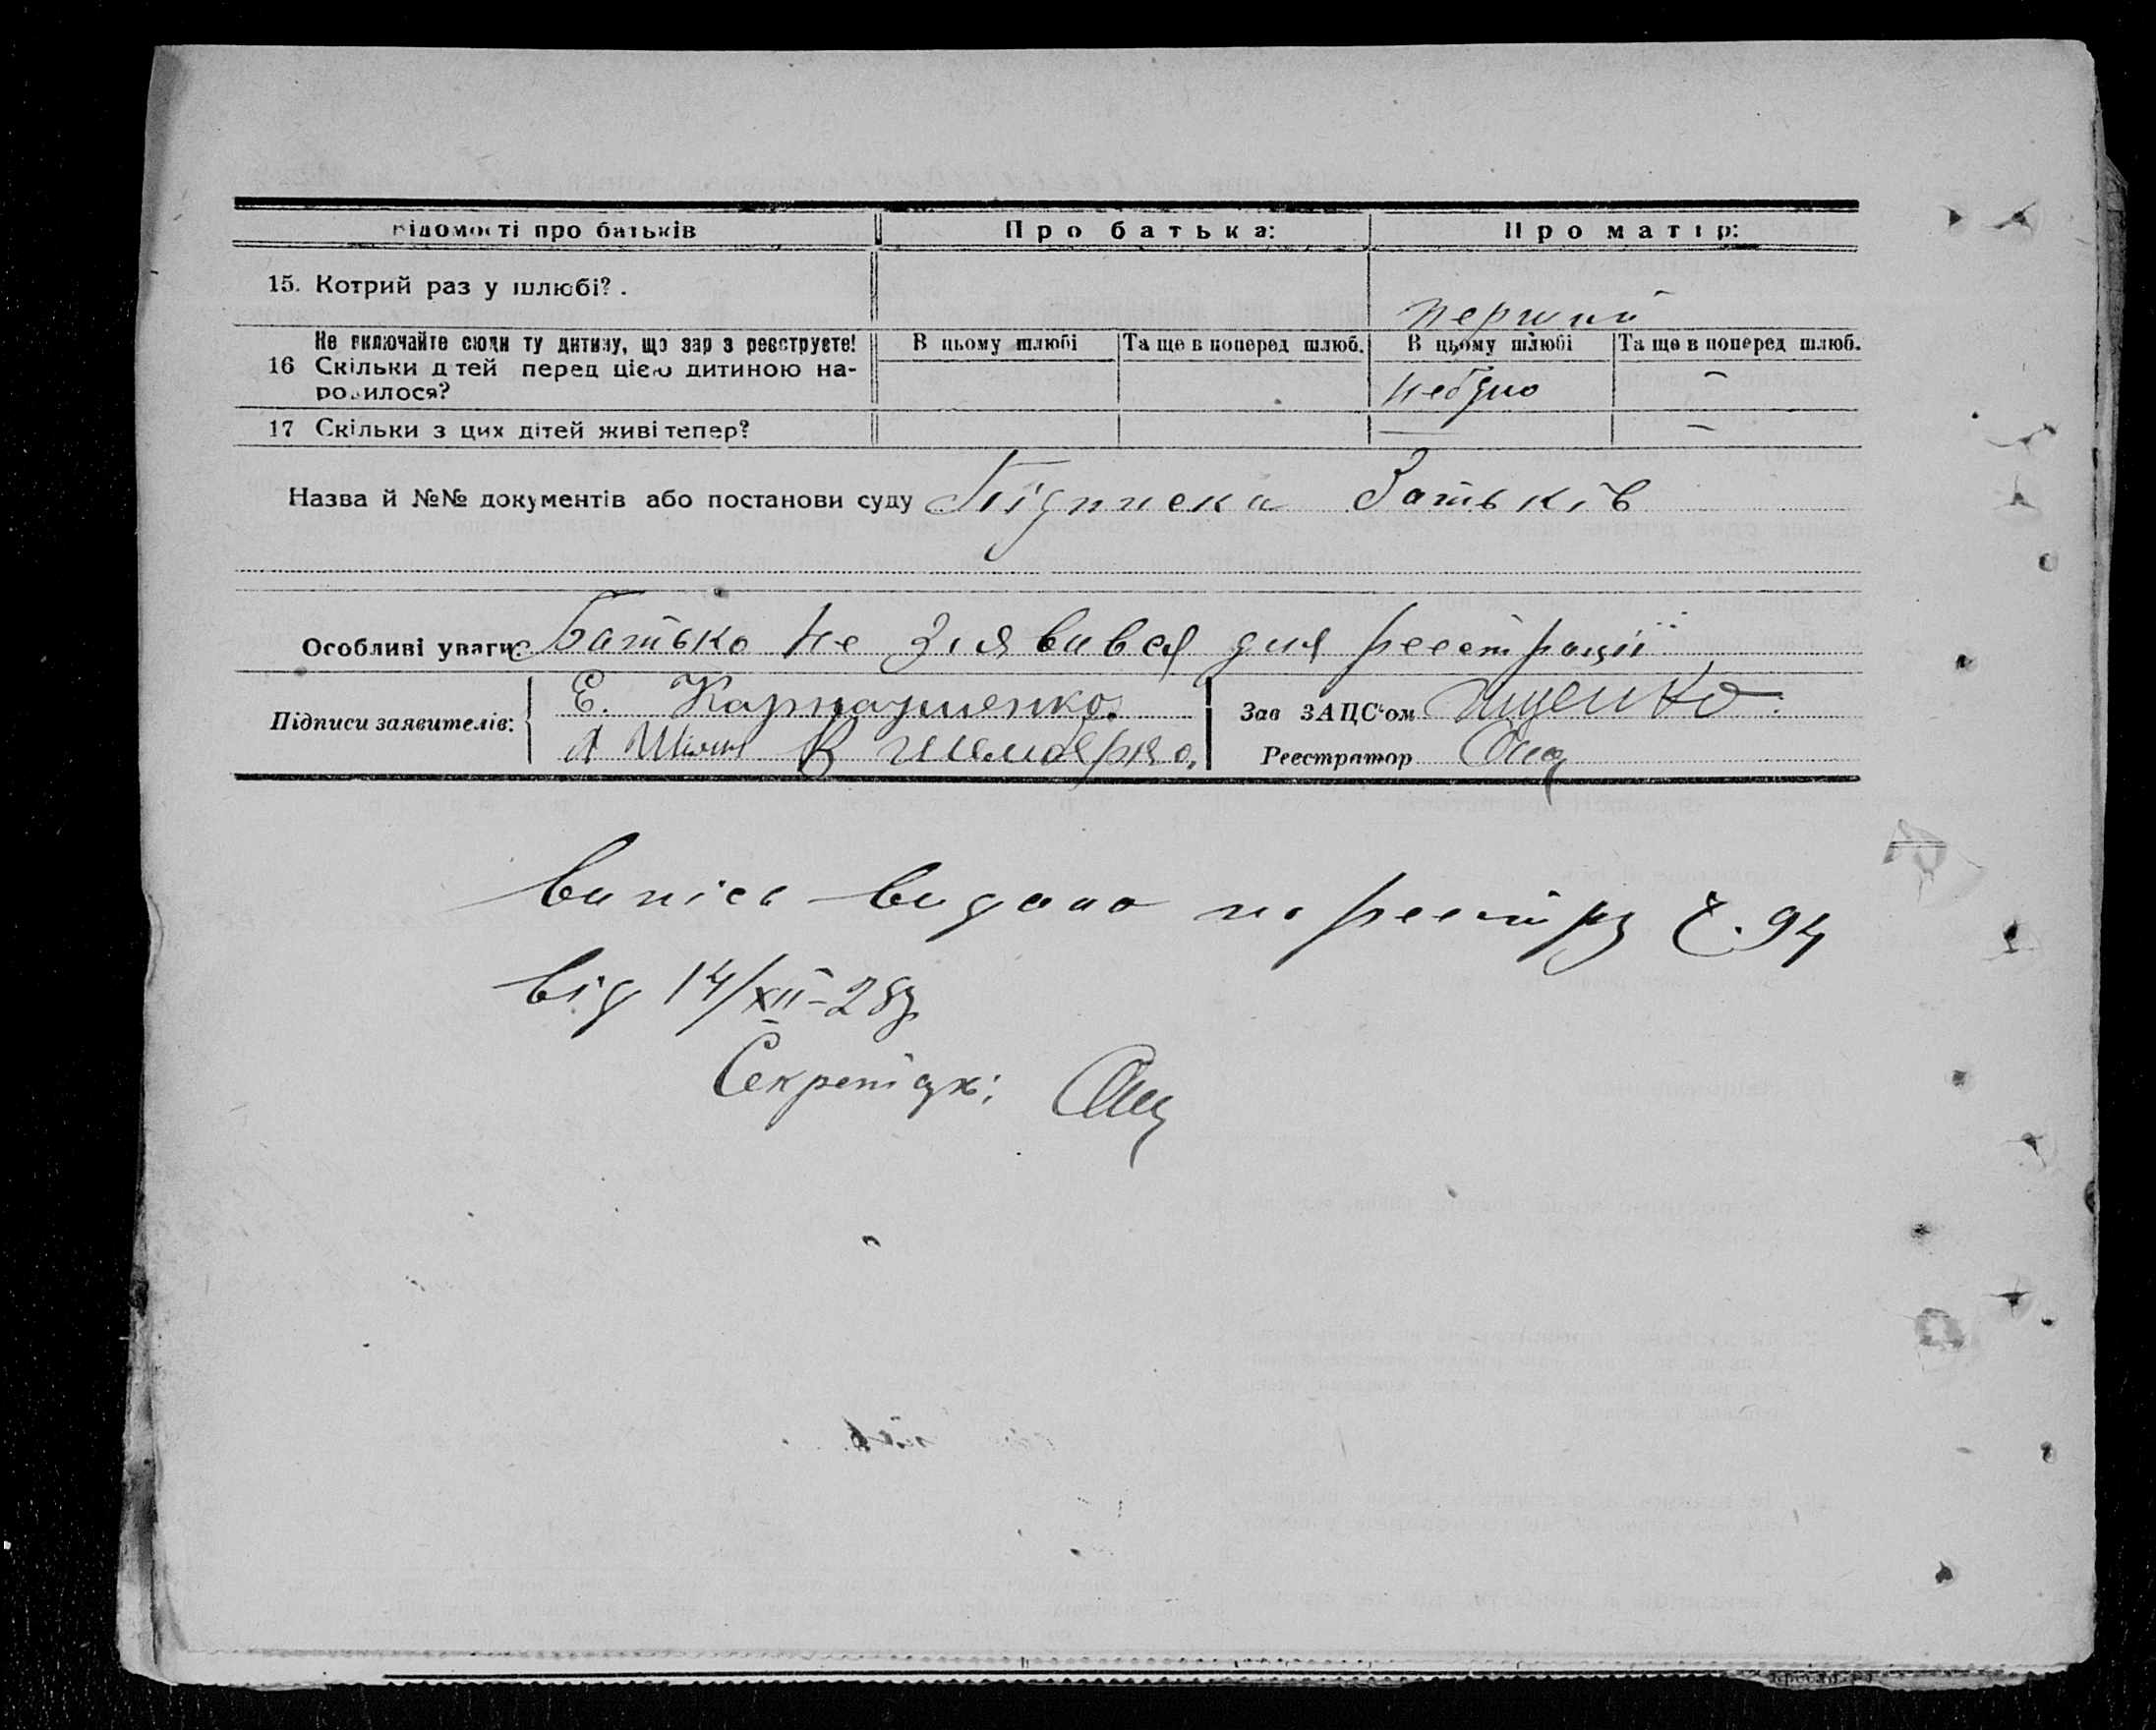 Відомості про батьків Про батька: Про матір:
15. Котрий раз у шлюбі?. перший
Не включайте сюди ту дитину, що зараз реєструєте! В цьому шлюбі Та ще в поперед шлюб. В цьому шлюбі Та ще в поперед шлюб.
16 Скільки дітей перед цією дитиною на- небуло –
родилося?
17 Скільки з цих дітей живі тепер? — –
Назва й №№ документів або постанови суду Підписка Батьків
Особливі уваги: Батько не зіявився для реєстрації
Підписи заявителів: Е. Карпаушенко. Зав ЗАЦС'ом Іщенко
А В Реєстратор
Випись видано по реєстру Ч. 94
від 14/XII-28р
Секретарь: